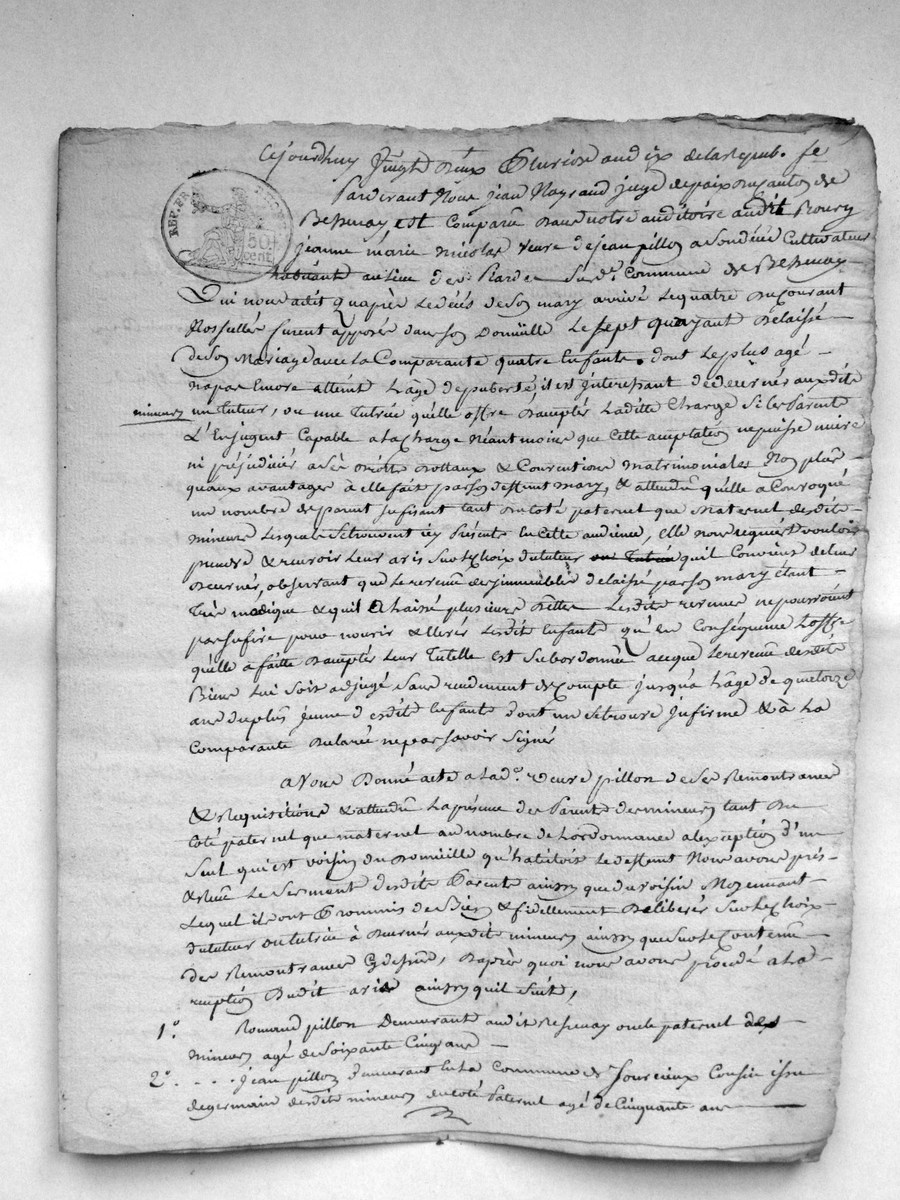 Cejourdhuy Vingt deux Pluviose an dix de la Repub. fe
Pardevant Nous jean Noyraud juge de paix du canton de
Bessenay est Comparue dans notre auditoire audit Bourg
jeanne marie nicolas veuve de jean pillon a Son déces Cultivateur
habitant au lieu de Commune de Bessenay
REP. FR.
50
cent.
Qui nous a dit quaprès le décès de Son mary arrivé le quatre du Courant
Nos scellés furent apposés dans son Domicille le sept quayant delaissé
de Son Mariage avec la Comparante quatre Enfants. dont le plus agé
na pas Encore atteint L'age de puberté, il est Interessant de decerner auxdits
mineurs un tuteur, ou une Tutrice quelle offre d'accepter Laditte Charge Si les Parents
L'En jugent Capable a la charge néantmoins que Cette acceptation ne puisse nuire
ni préjudicier a Ses droits dottaux & Conventions matrimoniales Non plus
quaux avantages à elle fait par son deffunt mary, & attendu quelle a Convoqué
un nombre de parents sufisant tant du Coté paternel que Maternel desdits
mineurs Lesquels Se trouvent icy Présents En Cette audience, Elle nous requiert vouloir
prendre & recevoir Leur avis Sur le Choix du tuteur ou Tutrice quil Convient de leur
decerner, observant que le revenu des immeubles delaissé par son mary étant
Très modique & quil a Laissé plusieurs dettes Lesdits revenus ne pourroient
pas sufire pour nourir & Elever Lesdits Enfants qu'En Conséquence Loffre
quelle a faitte d'accepter Leur Tutelle est Subordonnée a ceque le revenu desdits
Biens Lui Soit adjugé Sans rendement de Compte jusqua L'age de quatorze
ans du plus jeune desdits Enfants dont un Se trouve Infirme & à La
Comparante declarée ne pas savoir Signer
a Nous Donné acte a lad.e veuve pillon de Ses Remontrances
& Requisitions & attendu La présence des Parents des mineurs tant du
Coté paternel que maternel au nombre de Lordonnance a lexception d'un
Seul qui est voisin du domicille qu'habitoit le deffunt Nous avons pris
& reçu Le Serment desdits Parents ainsy que du voisin Moyennant
Lequel il ont Promis de Bien & fidellement Deliberer Sur le Choix
du tuteur ou tutrice à decerner auxdits mineurs ainsy que Sur le Contenu
des Remontrances Cy dessus, d'après quoi nous avons procédé a la
reception dudit avis ainsy quil Suit,
1.º Romand pillon Demeurant audit Bessenay oncle paternel des
mineurs agé de Soixante Cinq ans
2.º . . . . jean pillon demeurant En La Commune de Sourcieux Cousin issu
de germain desdits mineurs du coté Paternel agé de Cinquante ans